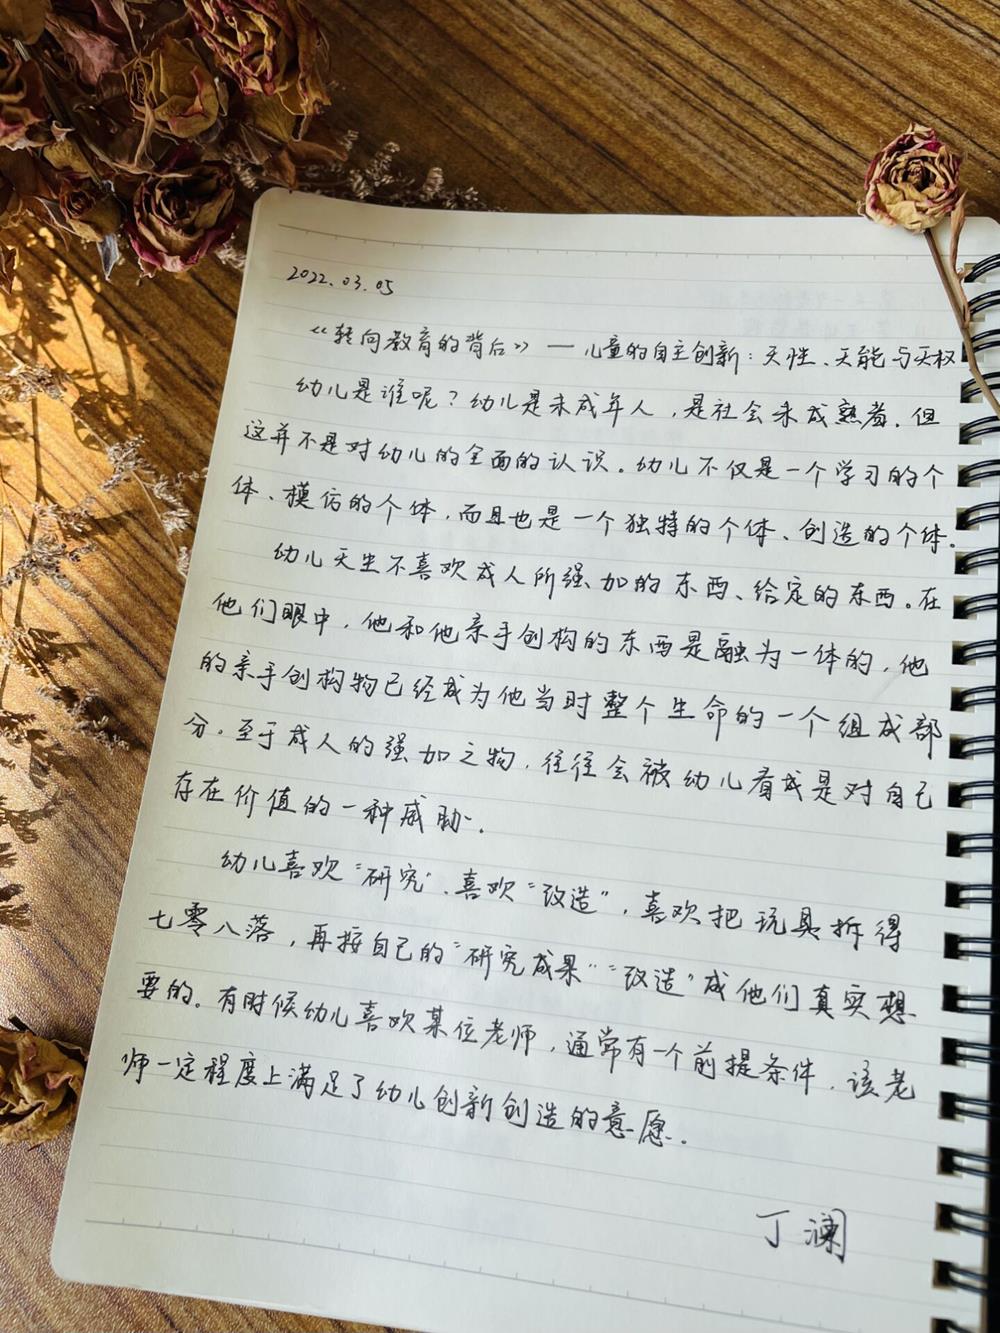 2022.03.05
《转向教育的背后》—儿童的自主创新：天性、天能与天权
幼儿是谁呢？幼儿是未成年人，是社会未成熟着．但
这并不是对幼儿的全面的认识。幼儿不仅是一个学习的个
体、模仿的个体，而且也是一个独特的个体、创造的个体．
幼儿天生不喜欢成人所强加的东西、给定的东西。在
他们眼中，他和他亲手创构的东西是融为一体的，他
的亲手创构物已经成为他当时整个生命的一个组成部
分。至于成人的强加之物，往往会被幼儿看成是对自己
存在价值的一种威胁．
幼儿喜欢“研究”、喜欢“改造”，喜欢把玩具拆得
七零八落，再按自己的“研究成果”“改造”成他们真实想
要的。有时候幼儿喜欢某位老师，通常有一个前提条件，该老
师一定程度上满足了幼儿创新创造的意愿．
丁澜